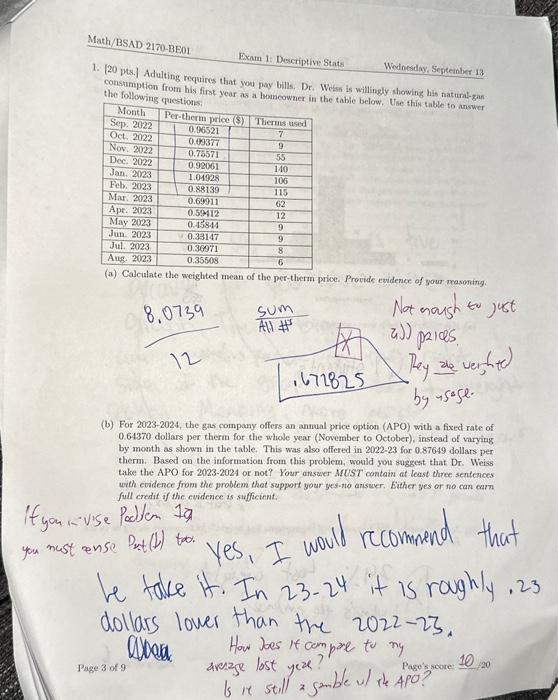 Math/BSAD 2170-BE01 Exam 1: Descriptive Stats Wednesday, September 13
1. [20 pts.] Adulting requires that you pay bills. Dr. Weiss is willingly showing his natural-gas
consumption from his first year as a homeowner in the table below. Use this table to answer
the following questions:
Month Per-therm price ($) Therms used
Sep. 2022 0.96521 7
Oct. 2022 0.99377 9
Nov. 2022 0.75571 55
Dec. 2022 0.92061 140
Jan. 2023 1.04928 106
Feb. 2023 0.88139 115
Mar. 2023 0.69911 62
Apr. 2023 0.59412 12
May 2023 0.45844 9
Jun. 2023 0.33147 9
Jul. 2023 0.36971 8
Aug. 2023 0.35508 6
(a) Calculate the weighted mean of the per-therm price. Provide evidence of your reasoning.
8.0739
12
sum
All #s
X
.672825
Not enough to just
add prices.
They are weighted
by usage.
(b) For 2023-2024, the gas company offers an annual price option (APO) with a fixed rate of
0.64370 dollars per therm for the whole year (November to October), instead of varying
by month as shown in the table. This was also offered in 2022-23 for 0.87649 dollars per
therm. Based on the information from this problem, would you suggest that Dr. Weiss
take the APO for 2023-2024 or not? Your answer MUST contain at least three sentences
with evidence from the problem that support your yes-no answer. Either yes or no can earn
full credit if the evidence is sufficient.
If you revise Problem 1a
you must revise Part (b) too.
Yes, I would recommend that
he take it. In 23-24 it is roughly .23
dollars lower than the 2022-23.
How does it compare to my
average last year?
Is it still a gamble w/ the APO?
Page 3 of 9
Page's score: 10 /20